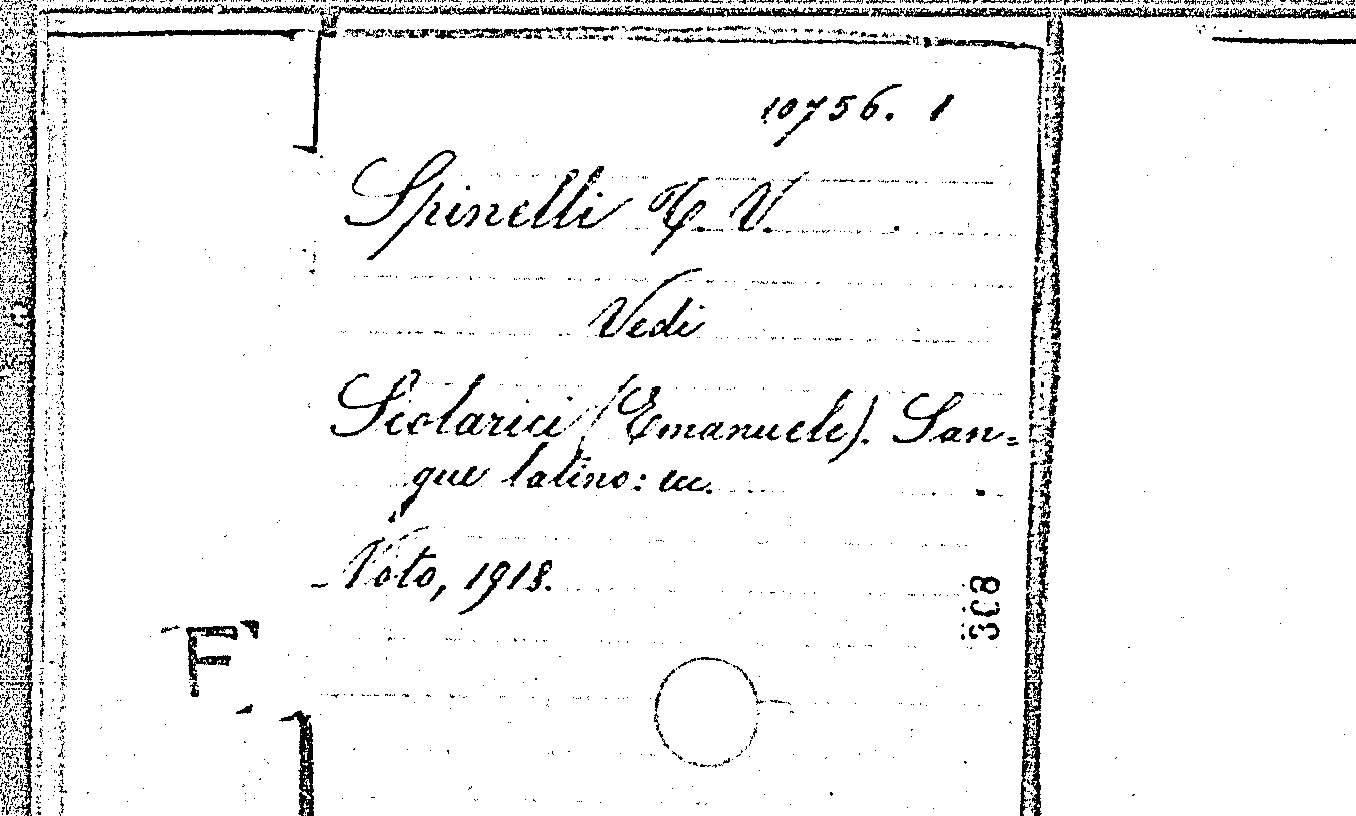 10756. 1
Spinelli T. V.
Vedi
Scolarici (Emanuele). San=
gue latino: ecc.
Noto, 1918.
F